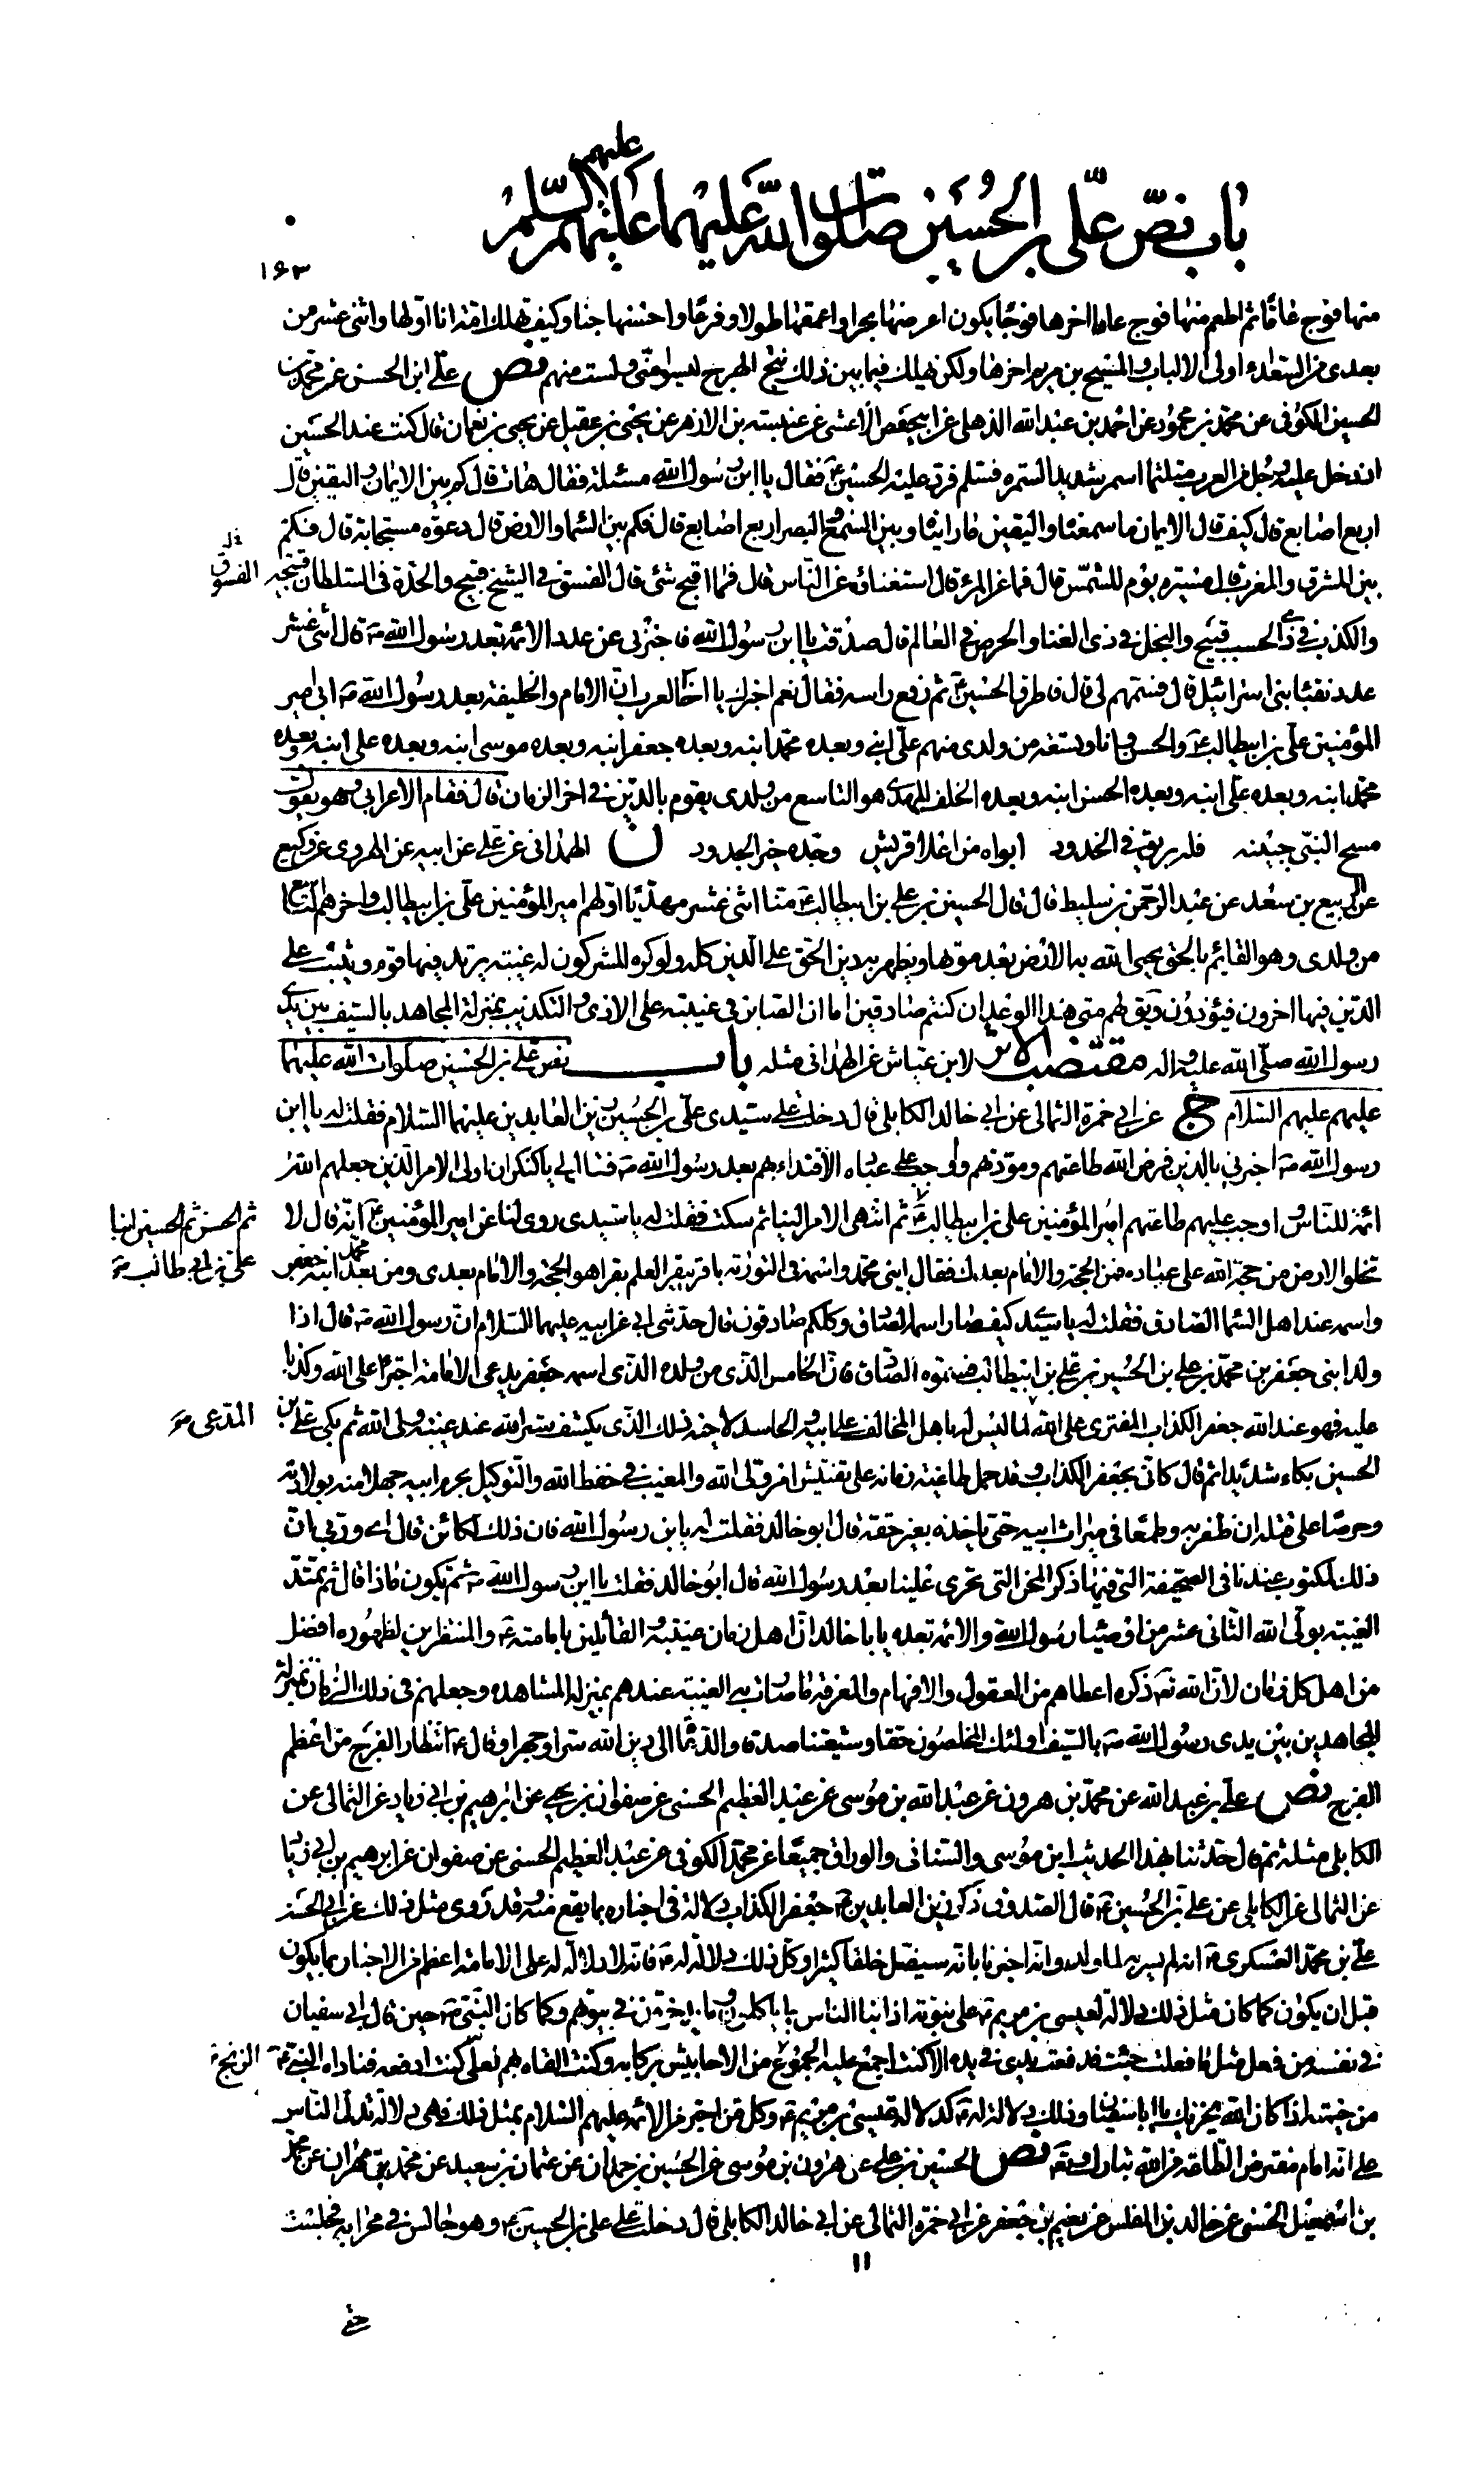 باب نصّ علّى بن الحسين صلوات الله عليهما عليهم عليهم السّلم
١۶٣
منها فوج عاما ثم اطعم منها فوج عاما اخرها فوجا يكون اعرضها بحرا واعمقها طولا وفرعا واحسنها جنا وكيف تهلك امة انا اوّلها واثنى عشر من
بعدى من السّعداء اولى الالباب والمسيح بن مريم اخرها ولكن يهلك فيما بين ذلك نتج الهرج ليسوا منّى ولست منهم نص علّى ابن الحسن عن محمّد بن
الحسين الكوفى عن محمّد بن محمود عن احمد بن عبد الله الذهلى عن ابى حفص الاعشى عن عنبسة بن الازهر عن يحيى بن عقيل عن يحيى بن نعمان قال كنت عند الحسين
اذ دخل عليه رجل من العرب متلثما اسمر شديد السّمرة فسلم فردّ عليه الحسين ع فقال يا ابن رسول الله مسئلة فقال هات قال كم بين الايمان واليقين قال
اربع اصابع قال كيف قال الايمان ما سمعناه واليقين ما رايناه وبين السّمع والبصر اربع اصابع قال فكم بين السّما والارض قال دعوة مستجابة قال فكم
بين المشرق والمغرب قال مسيرة يوم للشّمس قال فما عز المرء قال استغناؤه عن النّاس قال فما اقبح شئ قال الفسق في الشّيخ قبيح والحدّة فى السّلطان قبيحة الفسوق
والكذب في ذى الحسب قبيح والبخل في ذى الغنا والحرص في العالم قال صدقت يا ابن رسول الله فاخبرنى عن عدد الائمّة بعد رسول الله ص قال اثنى عشر
عدد نقباء بنى اسرائيل قال فسمّهم لى قال فاطرق الحسين ع ثم رفع راسه فقال نعم اخبرك يا اخا العرب انّ الامام والخليفة بعد رسول الله ص ابى امير
المؤمنين علّى بن ابيطالب ع والحسن وانا وتسعة من ولدى منهم علّى ابنى وبعده محمّد ابنه وبعده جعفر ابنه وبعده موسى ابنه وبعده على ابنه وبعده
محمّد ابنه وبعده علّى ابنه وبعده الحسن ابنه وبعده الخلف المهدى هو التاسع من ولدى يقوم بالدّين في اخر الزمان قال فقام الاعرابى وهو يقول
مسح النبّى جبينه فله بريق في الخدود ابواه من اعلا قريش وجدّه خير الجدود ن الهمدانى عن على عن ابيه عن الهروى عن وكيع
عن الربيع بن سعد عن عبد الرّحمن بن سليط قال قال الحسين بن على بن ابيطالب ع منّا اثنى عشر مهديّا اوّلهم امير المؤمنين علّى بن ابيطالب واخرهم التاسع
من ولدى وهو القايم بالحق يحيى الله به الارض بعد موتها ويظهر به دين الحق على الدّين كله ولو كره المشركون له غيبة يرتد فيها قوم ويثبت على
الدّين فيها اخرون فيؤذون ويق لهم متى هذا الوعد ان كنتم صادقين اما ان الصّابر في غيبته على الاذى والتكذيب بمنزلة المجاهد بالسّيف بين يدى
رسول الله صلّى الله عليه واله مقتضب الاثر لابن عيّاش عن الهمدانى مثله باب نص على بن الحسين صلوات الله عليهما
عليهم عليهم السّلام ج عن ابى حمزة الثمالى عن ابى خالد الكابلى قال دخلت على سيّدى علّى بن الحسين زين العابدين عليهما السّلام فقلت له يا ابن
رسول الله ص اخبرنى بالذين فرض الله طاعتهم ومودّتهم واوجب على عباده الاقتداء بهم بعد رسول الله ص فقال لى يا كنكر ان اولى الامر الّذين جعلهم الله
ائمّة للنّاس واوجب عليهم طاعتهم امير المؤمنين على بن ابيطالب ع ثم انتهى الامر الينا ثم سكت فقلت له يا سيّدى روى لنا عن امير المؤمنين ع انّه قال لا
ثم الحسن ثم الحسين ابنا
علّى بن ابى طالب
تخلوا الارض من حجّة الله على عباده فمن الحجّة والامام بعدك فقال ابنى محمّد واسمه في التوراة باقر يبقر العلم بقرا هو الحجّة والامام بعدى ومن بعد محمّد ابنه جعفر
واسمه عند اهل السّما الصّادق فقلت له يا سيّدى كيف صار اسمه الصّادق وكلّكم صادقون قال حدّثنى ابى عن ابيه عليهما السّلام ان رسول الله ص قال اذا
ولد ابنى جعفر بن محمّد بن على بن الحسين بن على بن ابيطالب فسمّوه الصّادق فان الخامس الّذى من ولده الّذى اسمه جعفر يدعى الامامة اجتراء على الله وكذبا
عليه فهو عند الله جعفر الكذّاب المفترى على الله لما ليس له باهل المخالف على ابيه والحاسد لاخيه ذلك الّذى يكشف ستر الله عند غيبة ولى الله ثم بكى على بن المدّعى
الحسين بكاء شديدا ثم قال كانّى بجعفر الكذّاب وقد حمل طاغية زمانه على تفتيش امر ولى الله والمغيب في حفظ الله والتّوكيل بحرم ابيه جهلا منه بولادته
وحرصا على قتله ان ظفر به وطمعا في ميراث ابيه حتى ياخذه بغير حقه قال ابو خالد فقلت له يا ابن رسول الله فان ذلك لكائن قال اى وربى ان
ذلك لمكتوب عندنا فى الصحيفة التى فيها ذكر المحن التى تجرى علينا بعد رسول الله قال ابو خالد فقلت يا ابن رسول الله ثم يكون ماذا قال ثم تمتدّ
الغيبة بولى الله الثانى عشر من اوصياء رسول الله والائمة بعده يا با خالد ان اهل زمان غيبته القائلين بامامته والمنتظرين لظهوره افضل
من اهل كل زمان لان الله تع ذكره اعطاهم من العقول والافهام والمعرفة ما صارت به الغيبة عندهم بمنزلة المشاهدة وجعلهم في ذلك الزمان بمنزلة
المجاهدين بين يدى رسول الله ص بالسّيف اولئك المخلصون حقا وشيعتنا صدقا والدّعاة الى دين الله سرّا وجهرا وقال ع انتظار الفرج من اعظم
الفرج نص علّى بن عبد الله عن محمّد بن هرون عن عبد الله بن موسى عن عبد العظيم الحسنى عن صفوان بن يحيى عن ابرهيم بن ابى زياد عن الثمالى عن
الكابلى مثله ثم قال حدّثنا بهذا الحديث ابن موسى والسّنانى والورّاق جميعا عن محمّد الكوفى عن عبد العظيم الحسنى عن صفوان عن ابرهيم بن ابى زياد
عن الثمالى عن الكابلى عن على بن الحسين ع قال الصّدوق ذكر زين العابدين ع جعفر الكذاب دلالة في اخباره بما يقع منه وقد روى مثل ذلك عن ابى الحسن
علّى بن محمّد العسكرى ع انه لم يسرّ به لما ولد وانه اخبرنا بانه سيضلّ خلقا كثيرا وكل ذلك دلالة له ع فانه لا دلالة له على الامامة اعظم من الاخبار بما يكون
قبل ان يكون كما كان مثل ذلك دلالة لعيسى بن مريم ع على نبوّته اذا انبا الناس بما ياكلون وما يدّخرون في بيوتهم وكما كان النّبى ص حين قال ابى سفيان
في نفسه من فعل مثل ما فعلت جئت فدفعت يدى في يده الا كنت اجمع عليه الجموع من الاحابيش بركابه وكنت القاه بهم فلعلى كنت ادفعه فناداه النبى ص
من خيمته اذا كان الله يخزيك يا ابا سفيان وذلك دلالة له ع كدلالة عيسى بن مريم ع وكل من اخبر من الائمة عليهم السّلام بمثل ذلك فهى دلالة تدلّ النّاس
على انه امام مفترض الطّاعة من الله تبارك وتع نص الحسين بن على عن هارون بن موسى عن الحسين بن حمدان عن عثمان بن سعيد عن محمد بن مهران عن محمّد
بن اسمعيل الحسنى عن خالد بن المفلس عن نعيم بن جعفر عن ابى حمزة الثمالى عن ابى خالد الكابلى قال دخلت على على بن الحسين ع وهو جالس في محرابه فجلست
١١